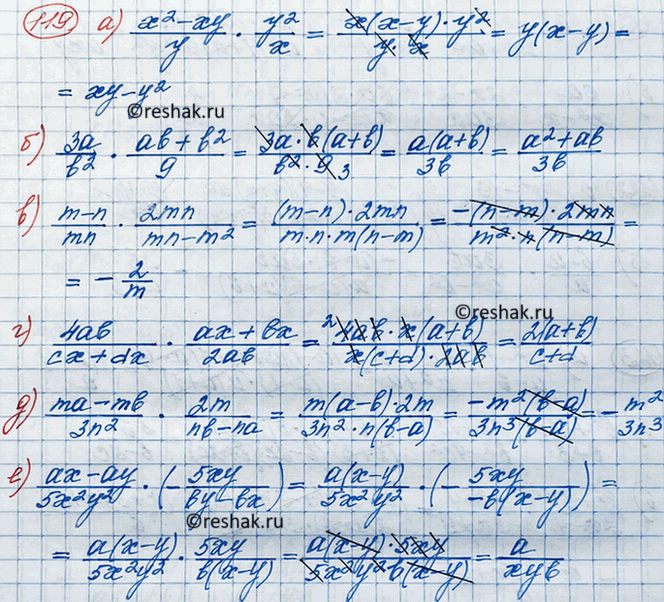 119 а) (x²−xy)/y · y²/x = (x(x−y)·y²)/(y·x) = y(x−y) =
= xy−y²
©reshak.ru
б) 3a/b² · (ab+b²)/9 = (3a·b(a+b))/(b²·9 3) = a(a+b)/3b = (a²+ab)/3b
в) (m−n)/mn · 2mn/(mn−m²) = ((m−n)·2mn)/(m·n·m(n−m)) = (−(n−m)·2mn)/(m²·n(n−m)) =
= −2/m
©reshak.ru
г) 4ab/(cx+dx) · (ax+bx)/2ab = (²4ab·x(a+b))/(x(c+d)·2ab) = 2(a+b)/(c+d)
д) (ma−mb)/3n² · 2m/(nb−na) = (m(a−b)·2m)/(3n²·n(b−a)) = (−m²(b−a))/(3n³(b−a)) = −m²/3n³
е) (ax−ay)/5x²y² · (−5xy/(by−bx)) = a(x−y)/5x²y² · (−5xy/(−b(x−y))) =
©reshak.ru
= a(x−y)/5x²y² · 5xy/b(x−y) = (a(x−y)·5xy)/(5x²y²b(x−y)) = a/xyb